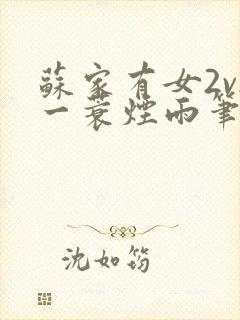 蘇家有女2v
一蓑煙雨筆
沈如筠